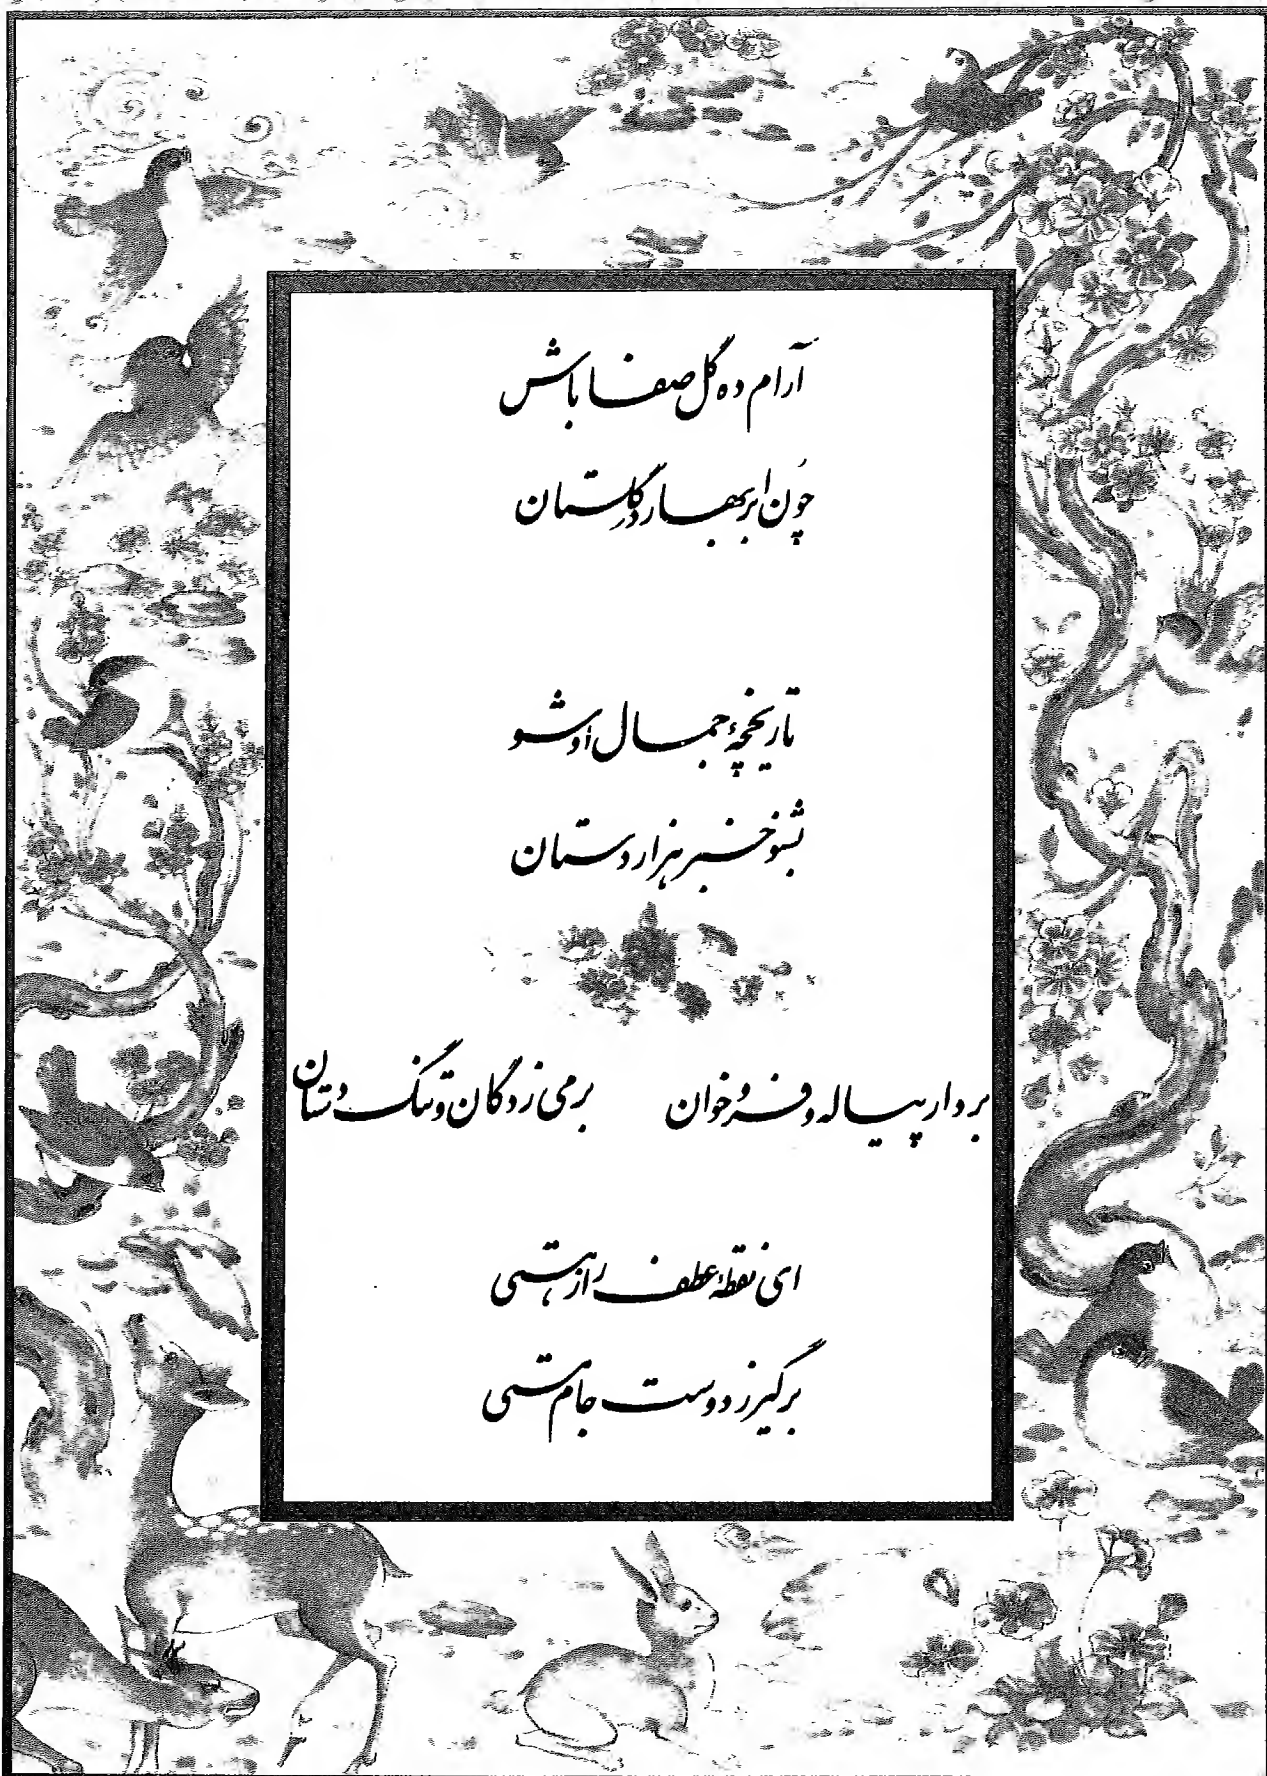 آرام ده گل صفا باش
چون ابر بهار در گلستان
تاریخچهٔ جمال او شو
بشنو خبر هزار دستان
بردار پیاله و فرو خوان بر می زدگان و تنگ دستان
ای نقطهٔ عطف راز هستی
برگیر ز دوست جام مستی